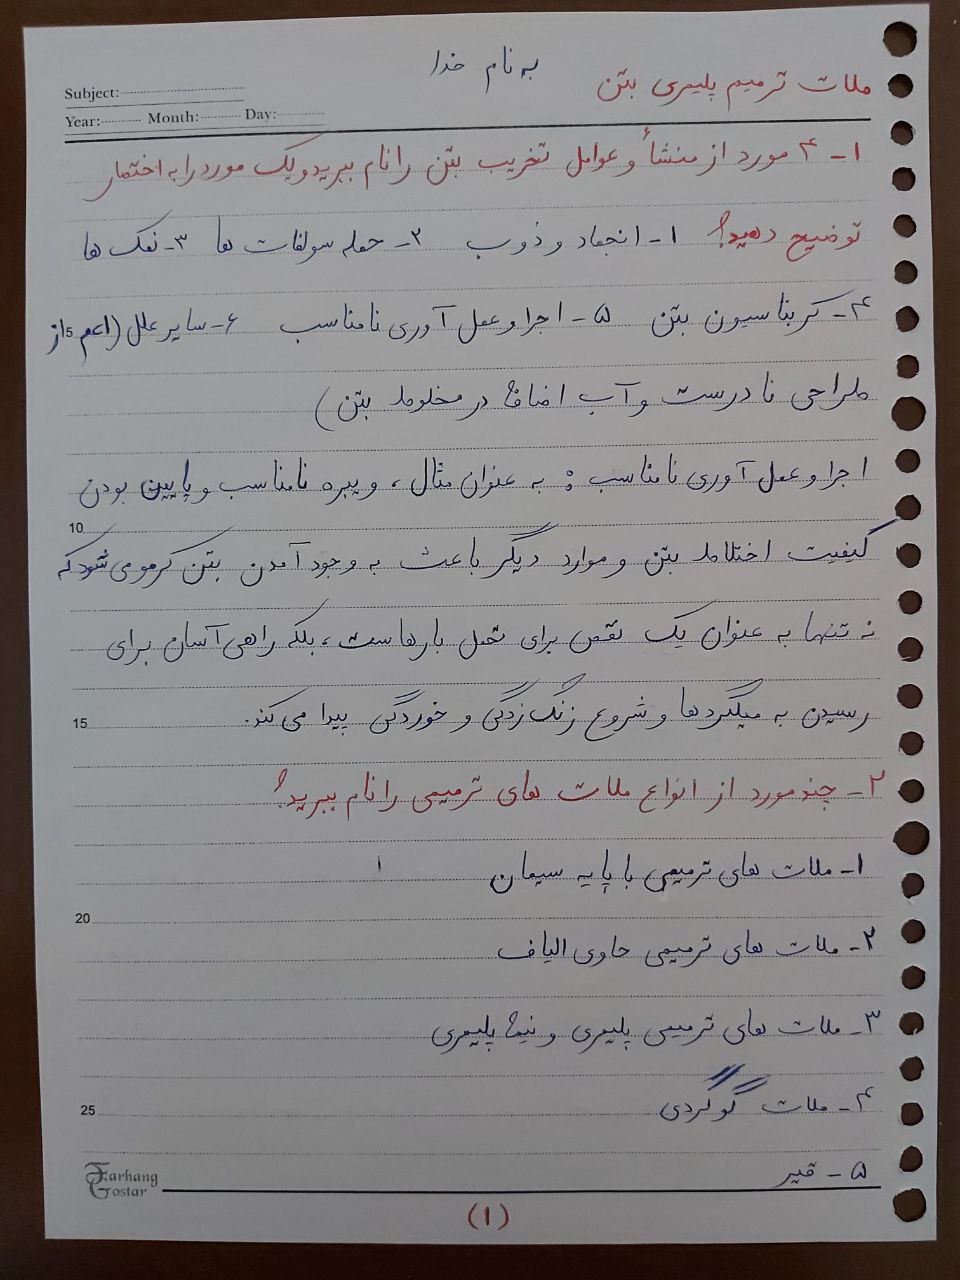 به نام خدا
ملات ترمیم پلیمری بتن
Subject:
Year: Month: Day:
۱- ۴ مورد از منشأ و عوامل تخریب بتن را نام ببرید و یک مورد را به اختصار
توضیح دهید؟ ۱- انجماد و ذوب ۲- حمله سولفات ها ۳- نمک ها
۴- کربناسیون بتن ۵- اجرا و عمل آوری نامناسب ۶- سایر علل (اعم از
5
طراحی نادرست و آب اضافه در مخلوط بتن)
اجرا و عمل آوری نامناسب : به عنوان مثال، ویبره نامناسب و پایین بودن
10
کیفیت اختلاط بتن و موارد دیگر باعث به وجود آمدن بتن کرمو می شود که
نه تنها به عنوان یک نقص برای تحمل بارهاست، بلکه راهی آسان برای
رسیدن به میلگردها و شروع زنگ زدگی و خوردگی پیدا می کند.
15
۲- چند مورد از انواع ملات های ترمیمی را نام ببرید؟
۱- ملات های ترمیمی با پایه سیمان
20
۲- ملات های ترمیمی حاوی الیاف
۳- ملات های ترمیمی پلیمری و نیمه پلیمری
۴- ملات گوگردی
25
۵- قیر
Farhang
Gostar
(۱)